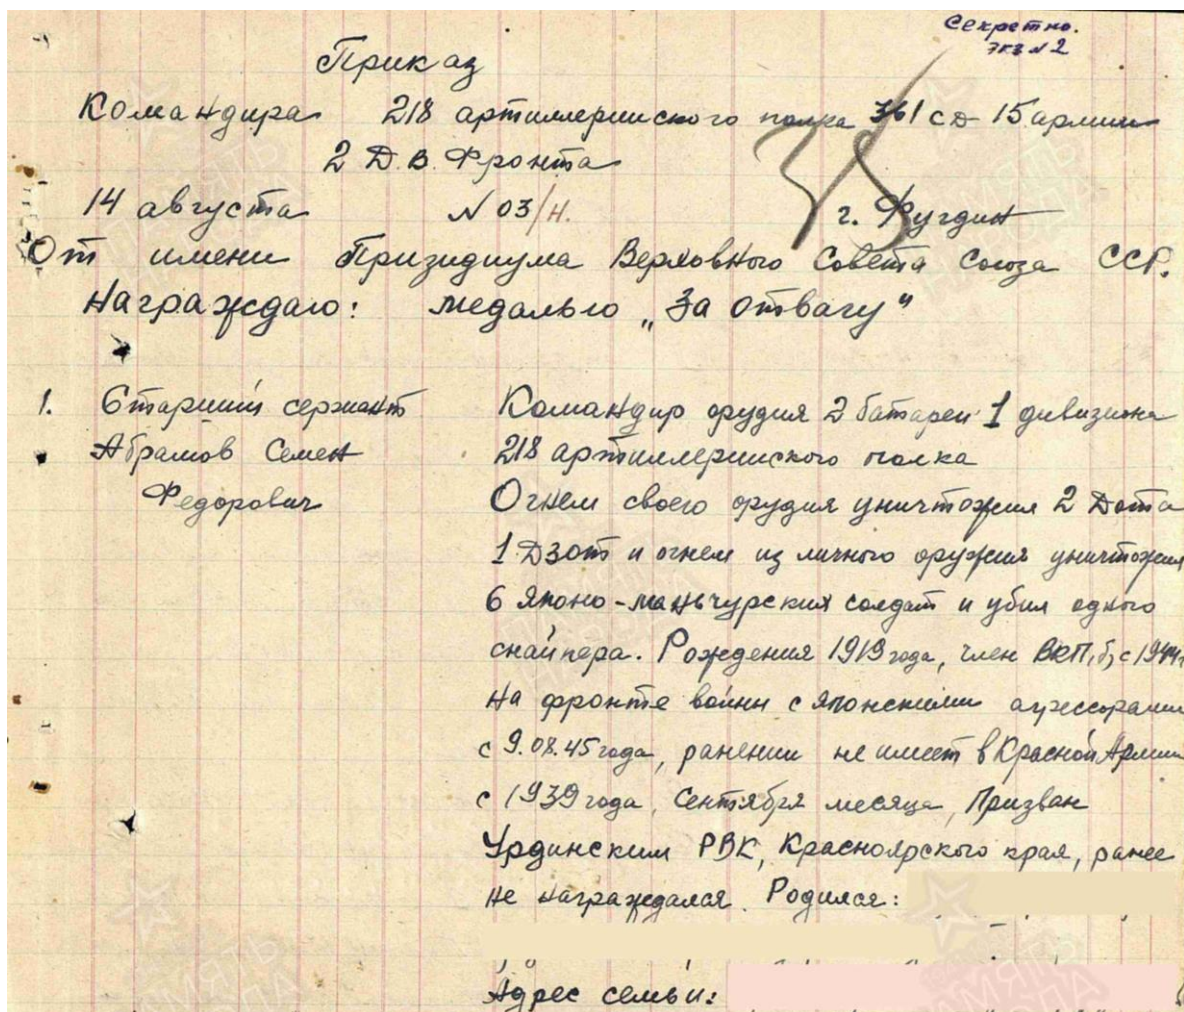 Секретно.
экз №2
Приказ
Командира 218 артиллериского полка 361 сд 15 армии
2 Д.В. Фронта
14 августа № 03/н. г. Фугдин
От имени Призидиума Верховного Совета Союза ССР.
Награждаю: медалью „За отвагу"
1. Старший сержант Командир орудия 2 батареи 1 дивизиона
Абрамов Семен 218 артиллериского полка
Федорович Огнем своего орудия уничтожил 2 Дота
1 Дзот и огнем из личного оружия уничтожил
6 Японо-маньчурских солдат и убил одного
снайпера. Рождения 1919 года, член ВКП,б, с 1944 г
На фронте войны с японскими агрессорами
с 9.08.45 года, ранении не имеет в Красной Армии
с 1939 года, Сентября месяца, Призван
РВК, Красноярского края, ранее
не награждался. Родился:
Адрес семьи: